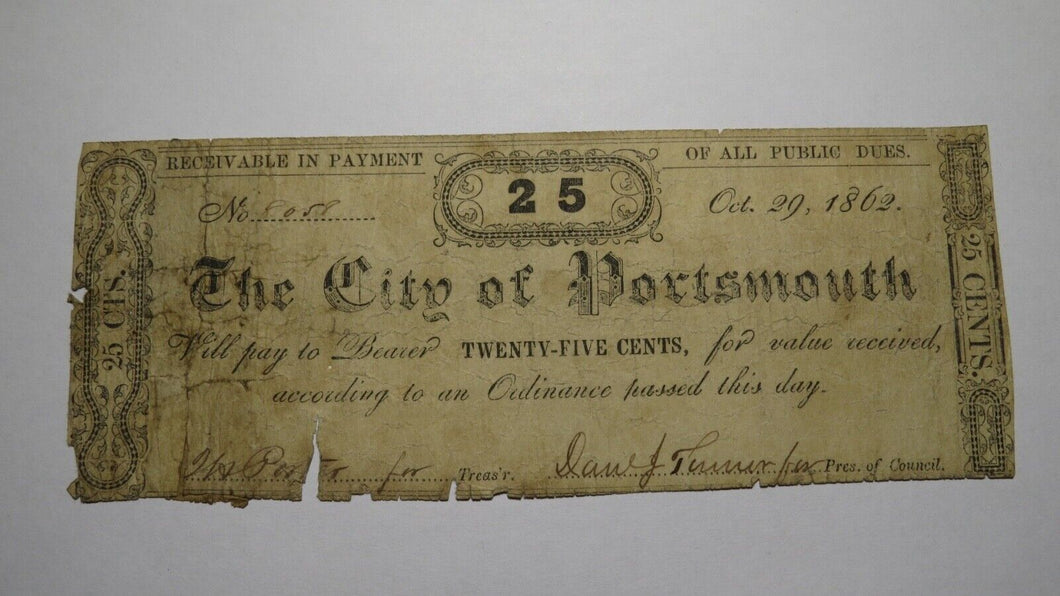 RECEIVABLE IN PAYMENT OF ALL PUBLIC DUES.
25
No 8058 Oct. 29, 1862.
The City of Portsmouth
Will pay to Bearer TWENTY-FIVE CENTS, for value received,
according to an Ordinance passed this day.
Porter for Treas'r. Danl J Turner for Pres. of Council.
25 CTS.
25 CENTS.